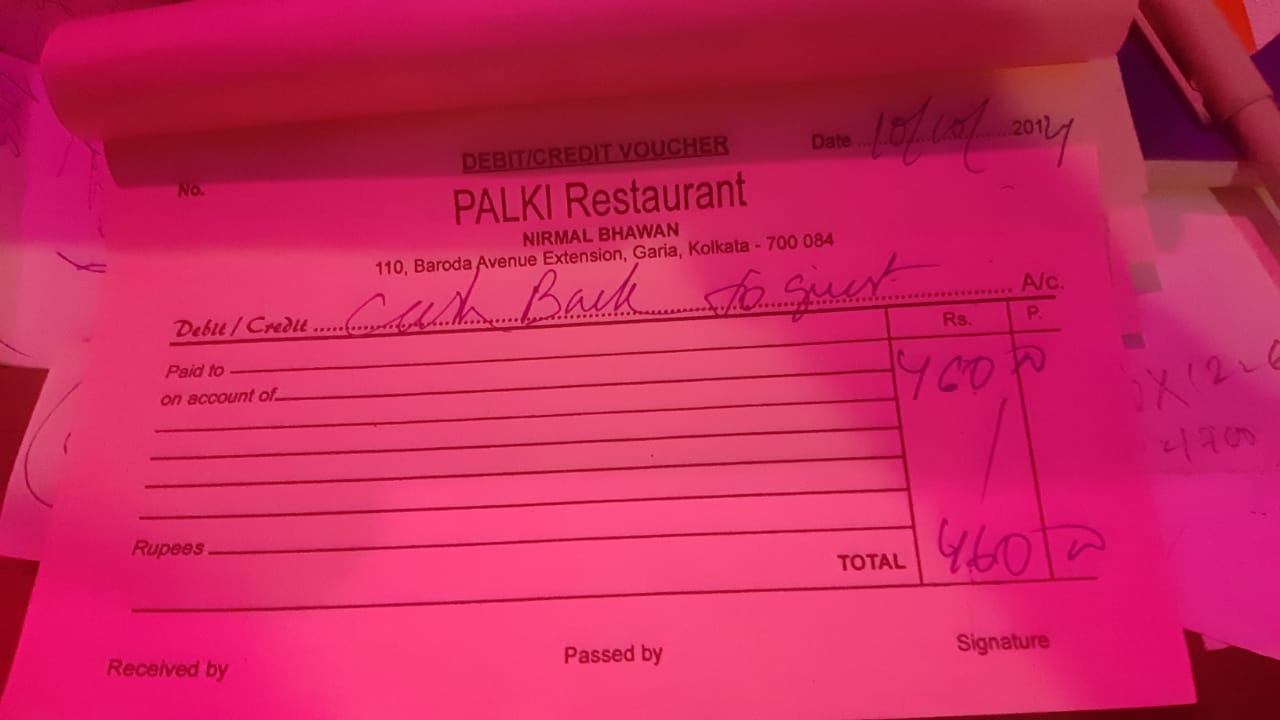 DEBIT/CREDIT VOUCHER
No.
Date 10/10/ 2024
PALKI Restaurant
NIRMAL BHAWAN
110, Baroda Avenue Extension, Garia, Kolkata - 700 084
Debit / Credit Cash Back to guest A/c.
Rs. P.
Paid to 460 00
on account of
Rupees
TOTAL 460 00
Received by Passed by Signature
X 12 =
=1700